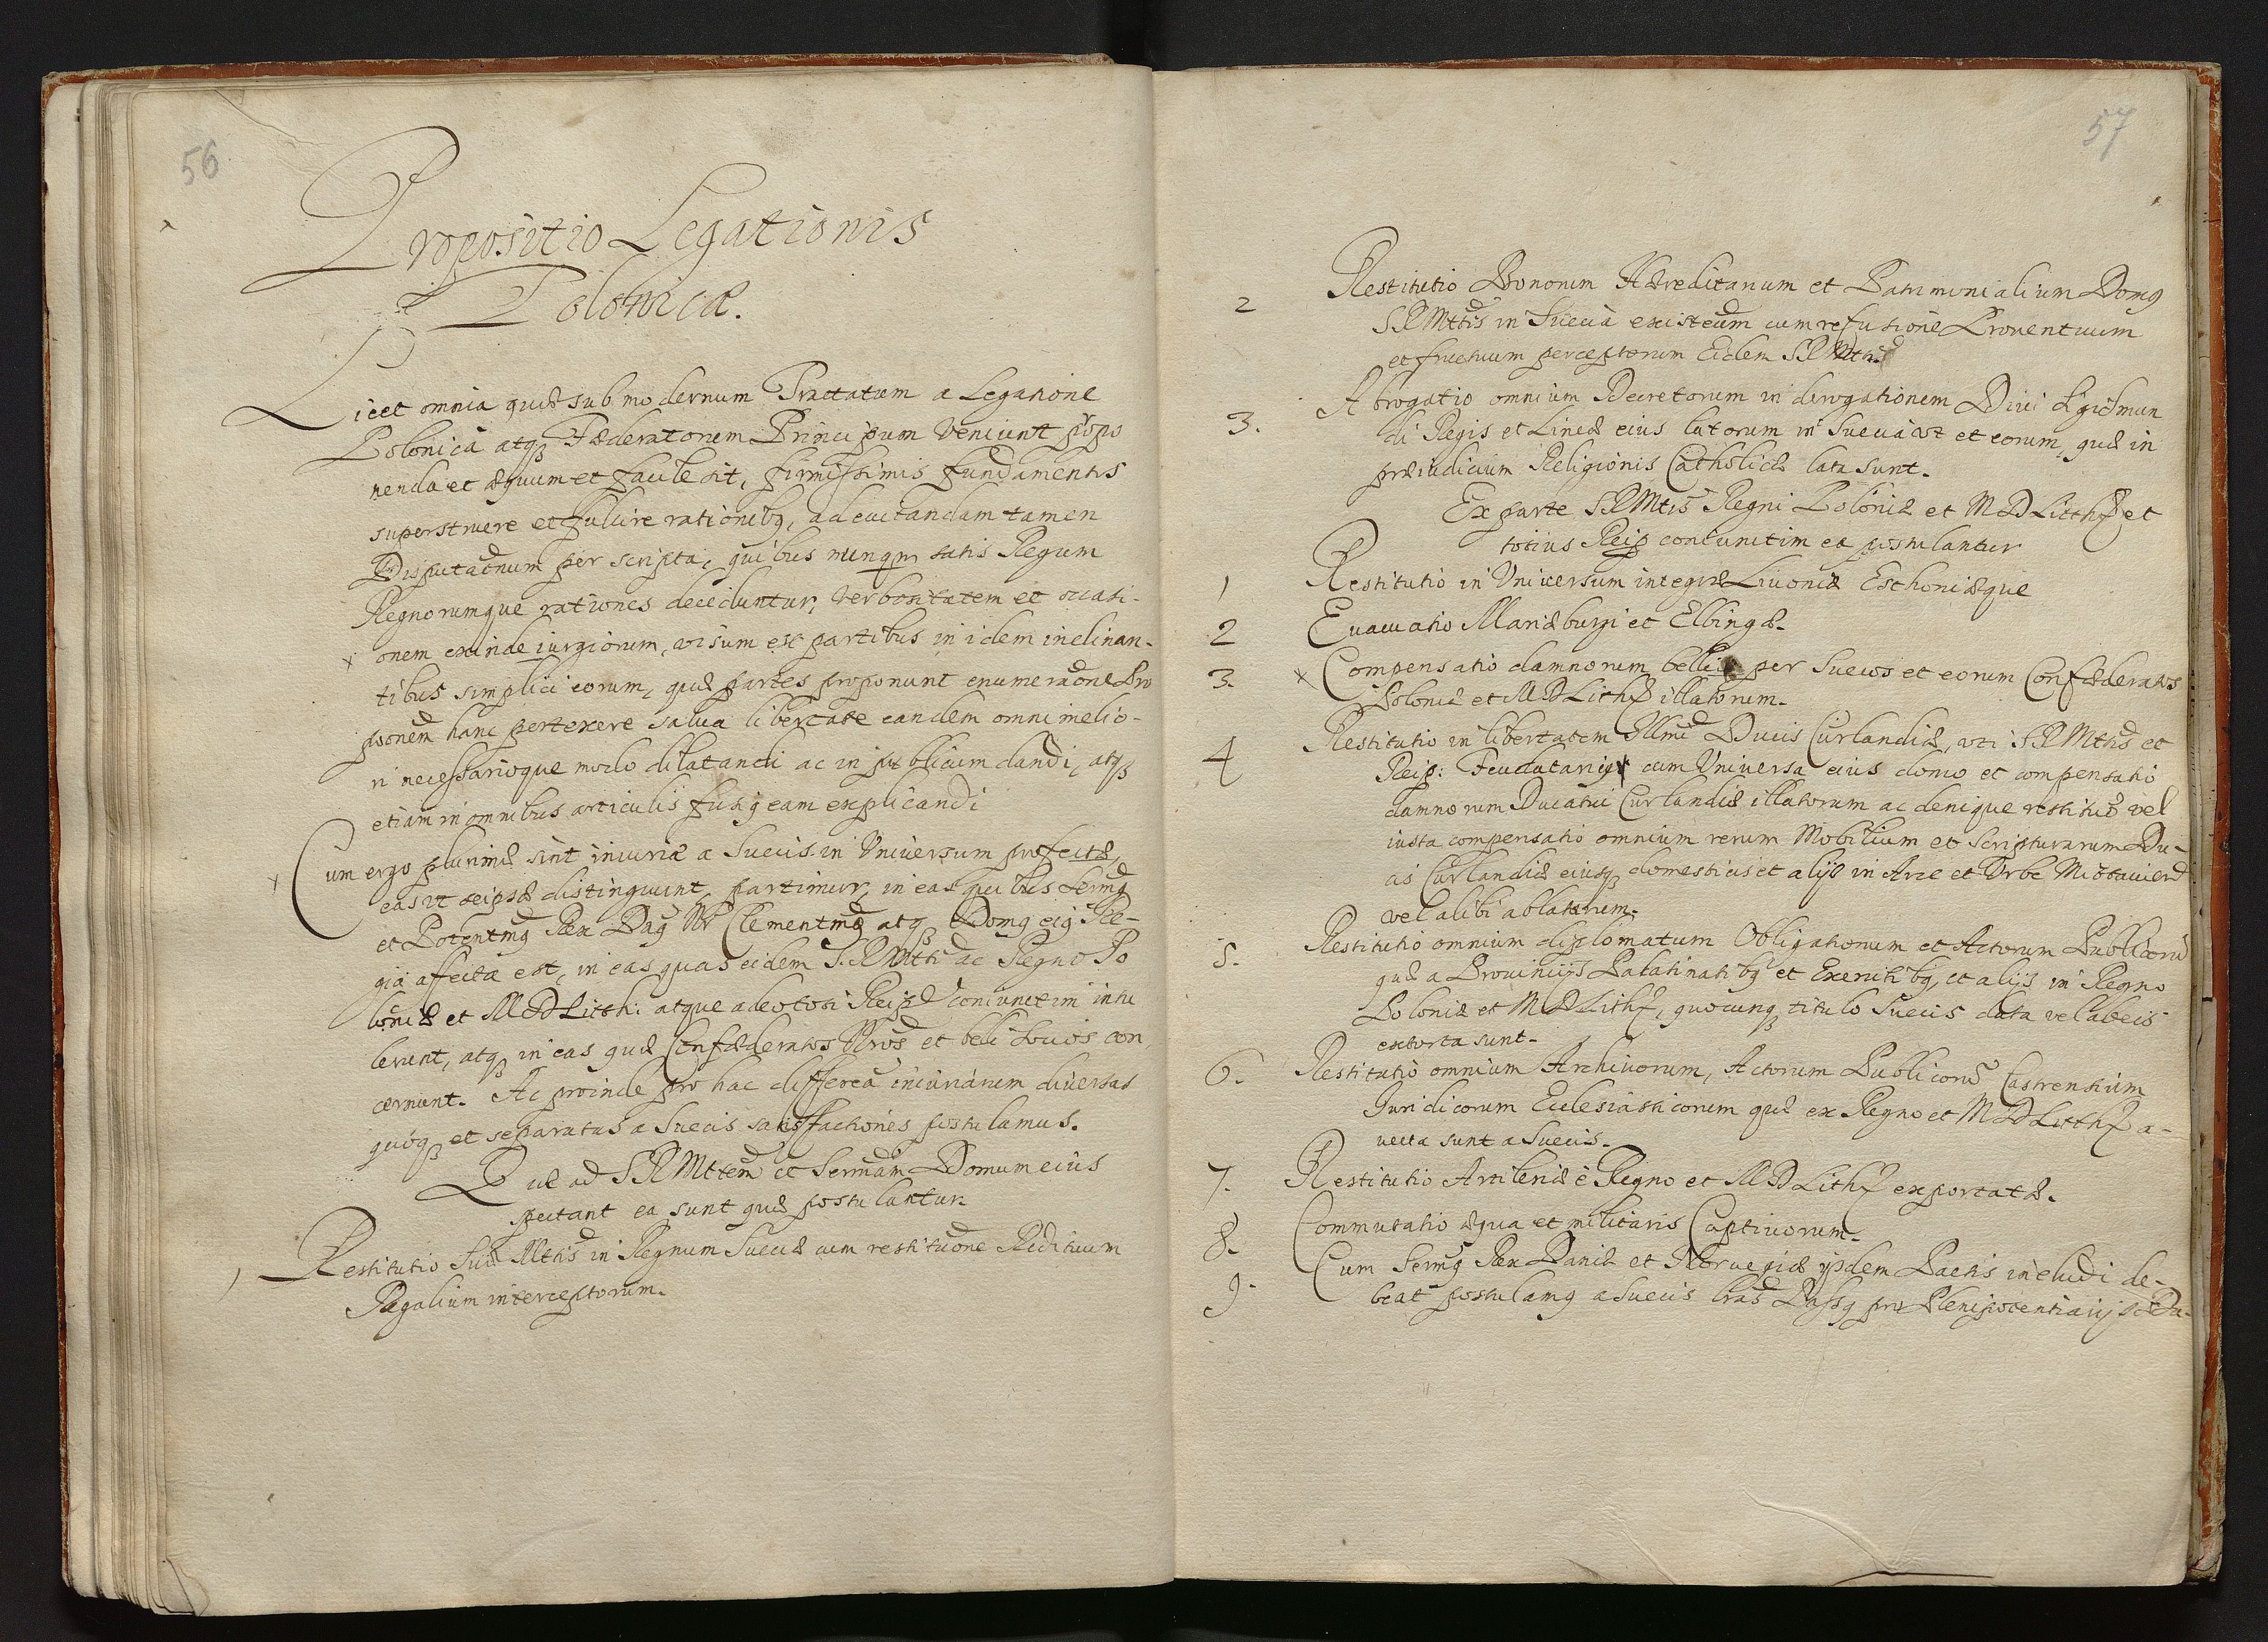 56
Propositio Legationis
Polonicæ.
Licet omnia quæ sub modernum Tractatum a Legatione
Polonica atqꝫ Fæderatorum Principum veniunt propo
nenda et æquum et facile sit, firmissimis fundamentis
superstruere et fulcire rationibꝯ, ad euitandam tamen
Disputatnum per scripta, quibus nunqm satis Regum
Regnorumque rationes deciduntur, verbositatem et occasi-
onem exinde iurgiorum, visum est partibus in idem inclinan-
tibus simplici eorum, quæ partes proponunt enumeraõne Pro
põnem hanc pertexere salua libertate eandem omni melio-
ri necessarioque modo dilatandi ac in publicum dandi, atqꝫ
etiam in omnibus articulis fusꝯ eam explicandi
Cum ergo plurimæ sint iniuriæ a Suecis in Vniuersum profectæ,
eas vt seipsæ distinguunt, partimur, in eas quibus Sermꝯ
et Potentmꝯ Rex Dnꝯ Nr Clementmꝯ atqꝫ Domꝯ eiꝯ Re-
gia affecta est, in eas quas eidem S.R.Mtti ac Regno Po
loniæ et M D Litth: atque adeo toti Reipæ coniunctim intu
lerunt, atqꝫ in eas quæ Confæderatos Nros et belli socios con
cernunt. Ac proinde pro hac differã iniuriarum diuersas
quoqꝫ et separatas a Suecis satisfactiones postulamus.
Quæ ad S R Mttem et Sermam Domum eius
spectant ea sunt quæ postulantur.
1 Restitutio Suæ Mttis in Regnum Sueciæ cum restituõne Redituum
Regalium interceptorum.
57
2 Restitutio Bonorum Hæreditarium et Patrimonialium Domꝯ
S R Mttis in Suecia existeñm cum refusione Prouentuum
et fructuum perceptorum Eidem S R Mtti.
3. Abrogatio omnium Decretorum in derogationem Diui Sigismun
di Regis et Lineæ eius latorum in Suecia vt et eorum, quæ in
præiudicium Religionis Catholicæ lata sunt.
Ex parte S R Mttis Regni Poloniæ et M D Litthæ et
totius Reip coniunctim ea postulantur
1 Restitutio in Vniuersum integræ Liuoniæ Esthoniæque
2 Euacuatio Mariæburgi et Elbingæ.
3. Compensatio damnorum belli per Suecos et eorum Confæderatos
Poloniæ et M D Lithæ illatorum.
4 Restitutio in libertatem Illmi Ducis Curlandiæ, vti S R Mttis et
Reip: Feudatarij cum Vniuersa eius domo et compensatio
damnorum Ducatui Curlandiæ illatorum ac denique restituõ vel
iusta compensatio omnium rerum Mobilium et Scripturarum Du-
cis Curlandiæ eiusqꝫ domesticis et alijs in Arce et Vrbe Mittauiens
vel alibi ablatarum.
5. Restitutio omnium diplomatum Obligationum et Actorum Publicorũ
quæ a Prouincijs Palatinatibꝯ et Exercitibꝯ, et alijs in Regno
Poloniæ et M D Lithæ, quocunqꝫ titulo Suecis data vel ab eis
extorta sunt.
6. Restitutio omnium Archiuorum, Actorum Publicorũ Castrensium
Iuridicorum Ecclesiasticorum quæ ex Regno et M D Litthæ a-
uecta sunt a Suecis.
7. Restitutio Artileriæ è Regno et M D Lithæ exportatæ.
8. Commutatio æqua et militaris Captiuorum.
9. Cum Sermꝯ Rex Daniæ et Noruegiæ ijsdem Pactis includi de-
beat postulamꝯ a Suecis lras Passꝯ pro Plenipotentiarijs Da-